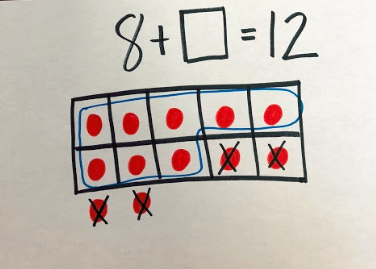 8 + □ = 12